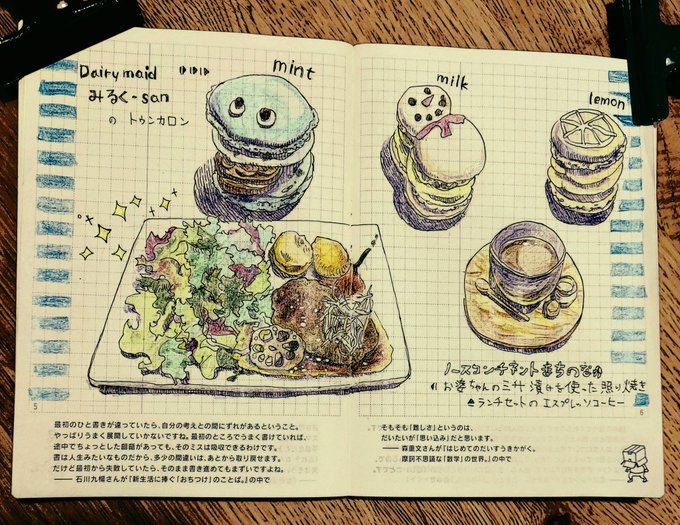 Dairy maid
みるく-san
の トゥンカロン
mint
milk
lemon
ノースコンチネント まちのなか
お婆ちゃんの三升漬けを使った照り焼き
ランチセットの エスプレッソコーヒー
5
最初のひと書きが違っていたら、自分の考えとの間にずれがあるということ。
やっぱりうまく展開していかないですね。最初のところでうまく書けていれば、
途中でちょっとした齟齬があっても、そのミスは吸収できるわけです。
書は人生みたいなものだから、多少の間違いは、あとから取り戻せます。
だけど最初から失敗していたら、そのまま書き進めてもまずいですよね。
—— 石川九楊さんが『新生活に捧ぐ「おちつけ」のことば。』の中で
6
そもそも「難しさ」というのは、
だいたいが「思い込み」だと思います。
—— 森田真生さんが『はじめてのだいすうきかがく。
摩訶不思議な「数学」の世界。』の中で